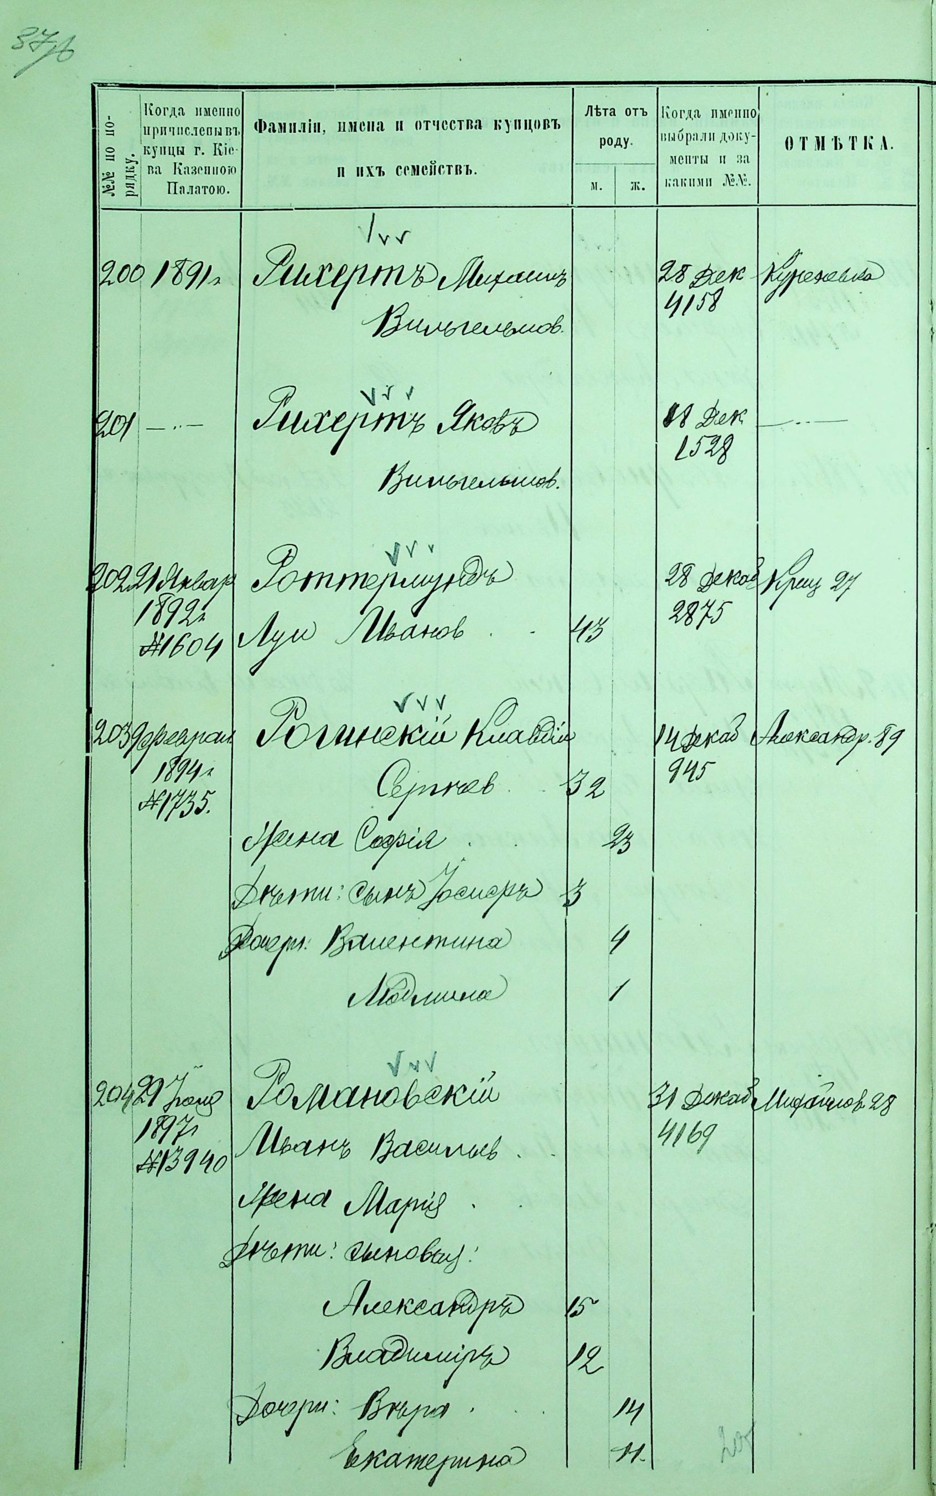 №№ по по-
рядку.
Когда именно
причислены въ
купцы г. Кіе-
ва Казенною
Палатою.
Фамиліи, имена и отчества купцовъ
и ихъ семействъ.
Лѣта отъ
роду.
м. ж.
Когда именно
выбрали доку-
менты и за
какими №№.
ОТМѢТКА.
200 1891 г Рихертъ Михаилъ 28 Дек Куреневка
Вильгельмов. 4158
201 — Рихертъ Яковъ 18 Дек —
1528
Вильгельмов.
202 21 Январ Роттермундъ 28 Декаб Крещ 27
1892 г 2875
№1604 Луи Иванов 43
203 9 Феврал Рогинскій Клавдій 14 Декаб Александр. 89
1894 г 945
№1735. Сергѣев 32
Жена Софія 23
Дѣти: сынъ Іосифъ 3
Дочери: Валентина 4
Людмила 1
204 29 Романовскій 31 Декаб Михайлов 28
1897 г 4169
№13940 Иванъ Васильев
Жена Марія
Дѣти: сыновья:
Александръ 15
Владиміръ 12
Дочери: Вѣра 14
Екатерина 11.